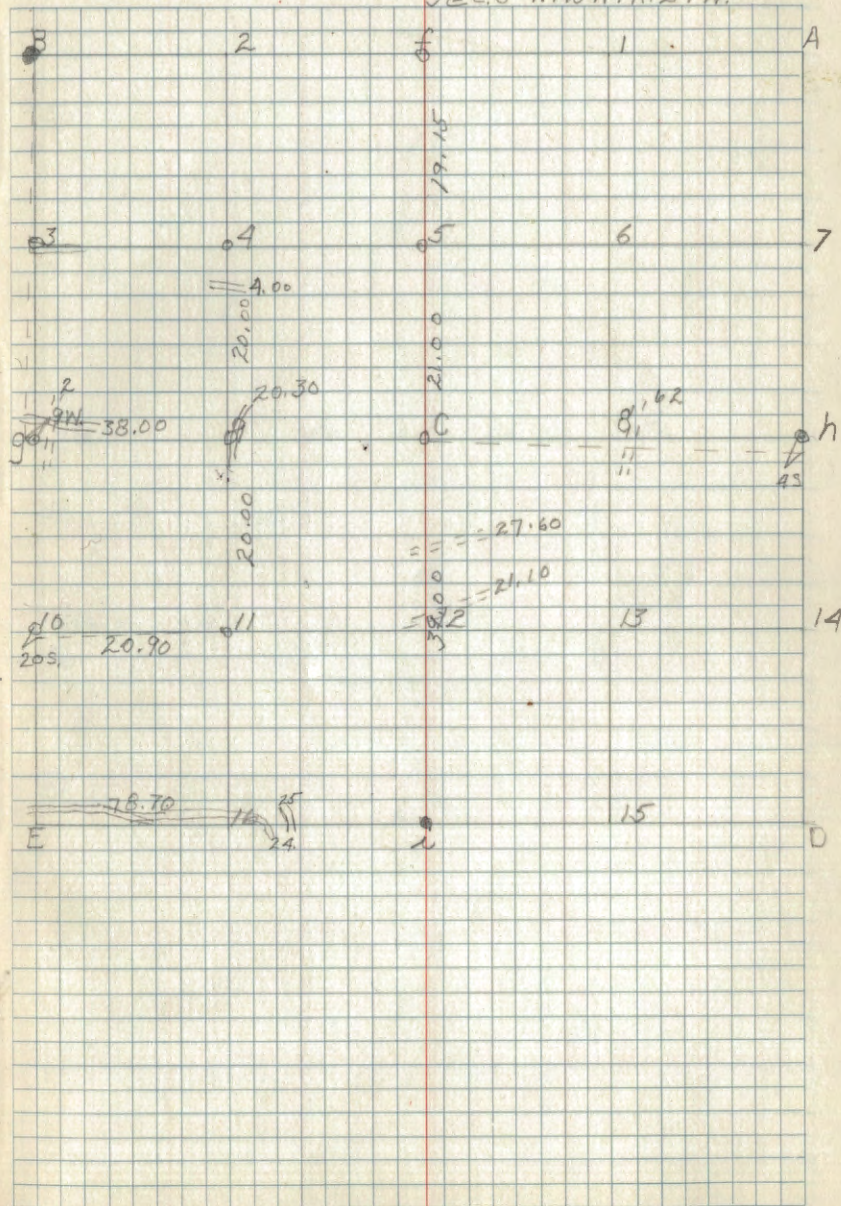 B 2 f 1 A
19.15
3 4 5 6 7
4.00
20.00
21.00
2 20.30 62
9W. 38.00 C 8 h
g
4S
20.00
27.60
21.10
39.00
10 11 12 13 14
20S. 20.90
78.70 25
16 15
E 24 i D